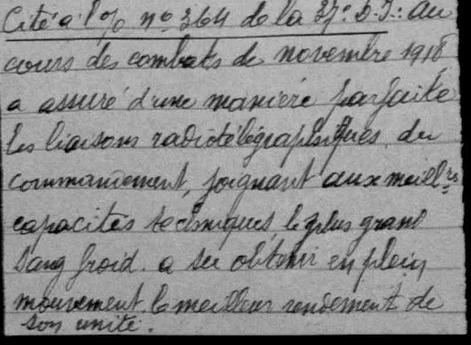 Cité à l'o/ n° 364 de la 37e D.I: au
cours des combats de novembre 1918
a assuré d'une manière parfaite
les liaisons radiotélégraphiques du
commandement, joignant aux meillres
capacités techniques le plus grand
sang froid. a su obtenir en plein
mouvement le meilleur rendement de
son unité.